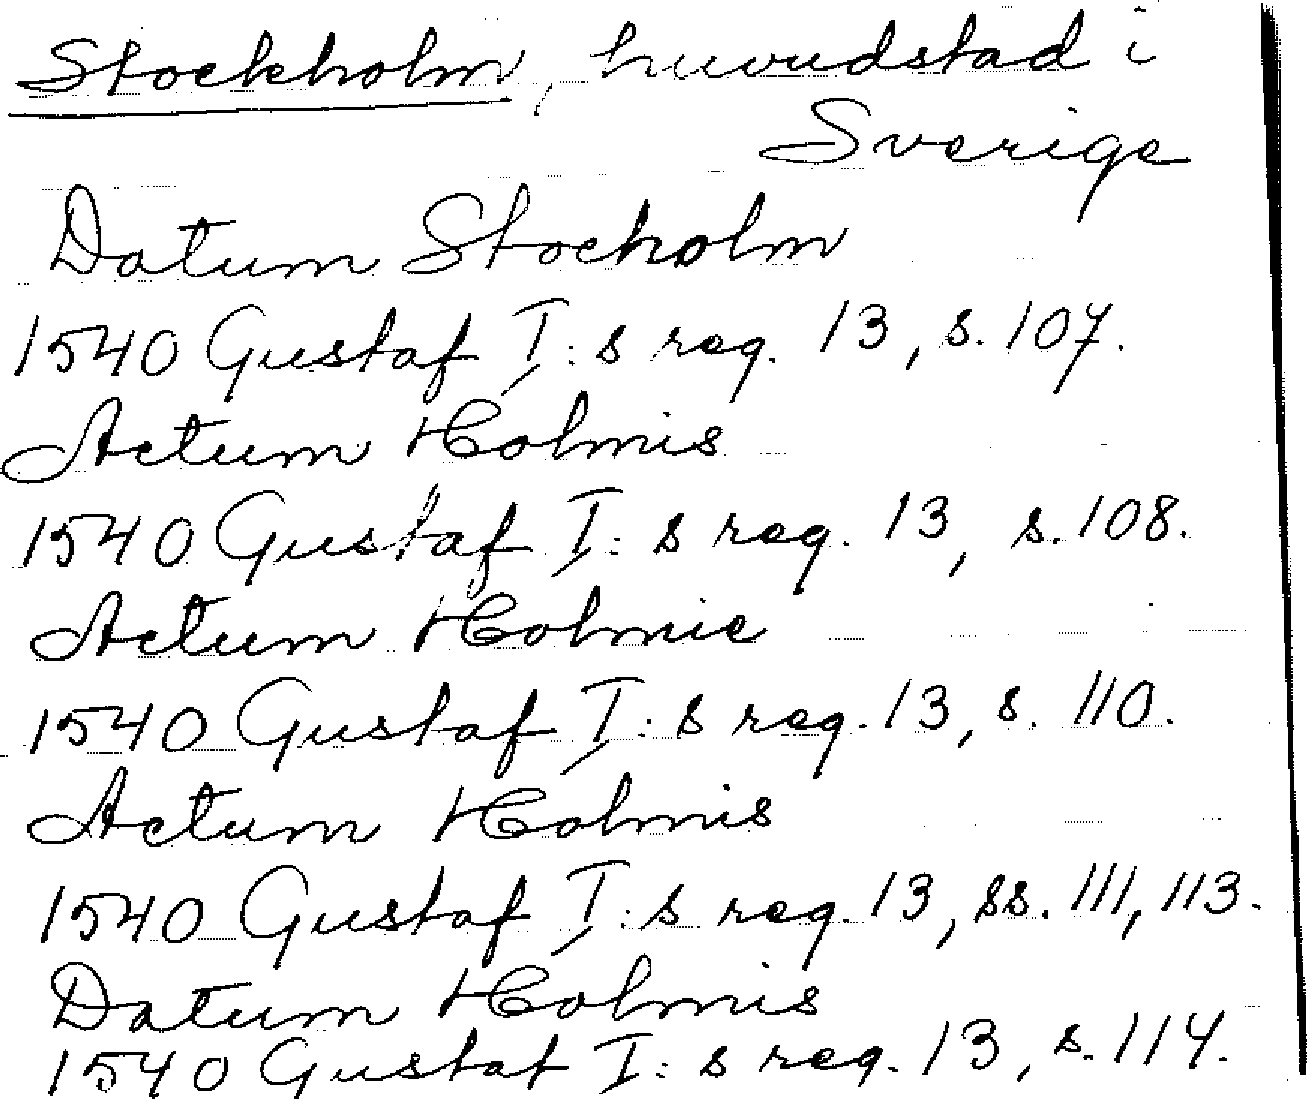 Stockholm, huvudstad i
Sverige
Datum Stocholm
1540 Gustaf I:s reg. 13, s. 107.
Actum Holmis
1540 Gustaf I:s reg. 13, s. 108.
Actum Holmie
1540 Gustaf I:s reg. 13, s. 110.
Actum Holmis
1540 Gustaf I:s reg. 13, ss. 111, 113.
Datum Holmis
1540 Gustaf I:s reg. 13, s. 114.